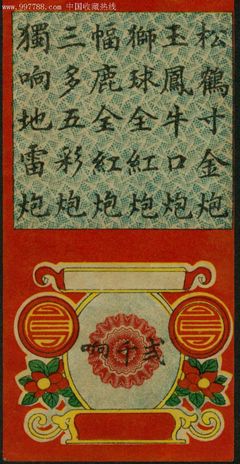 www.997788.com 中国收藏热线
松鶴寸金炮
玉鳳牛口炮
獅球全紅炮
幅鹿全紅炮
三多五彩炮
獨响地雷炮
弍千响